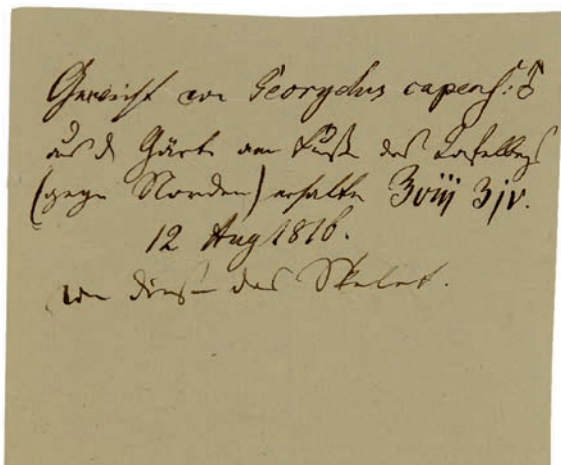 Gewicht von Georychus capens: ♂
aus d Gärt am Fuße des Tafelbergs
(gege Norden) erhalte ℥viij ʒjv.
12 Aug 1816.
von dies das Skelet.